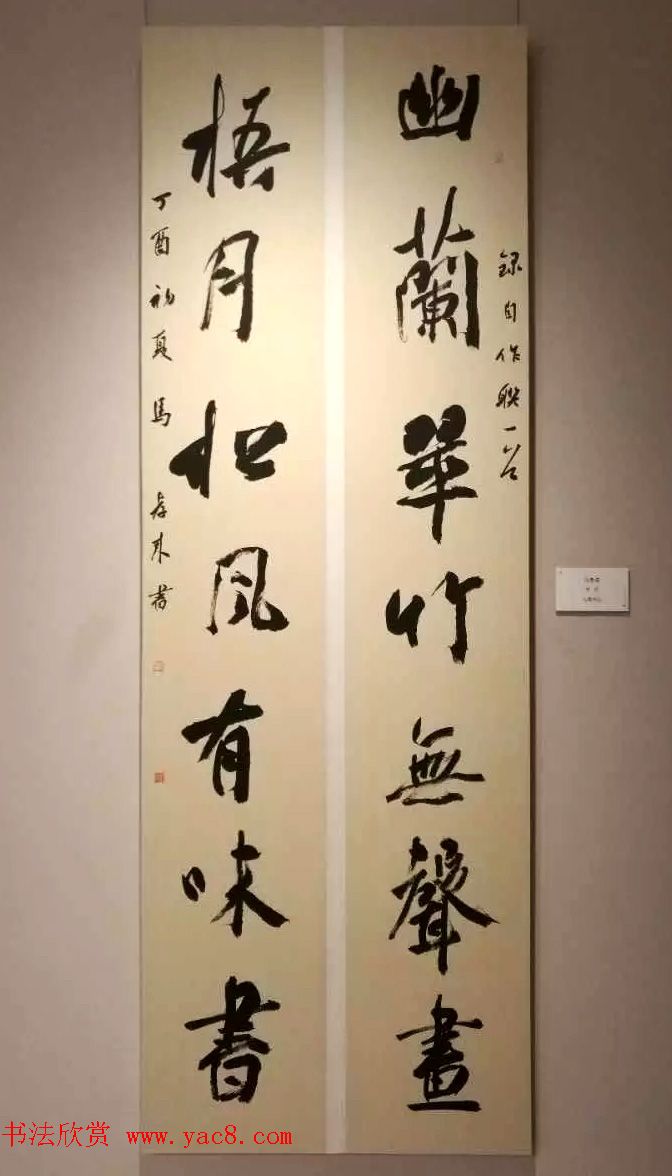 録自作聯一
幽蘭翠竹無聲畫
梧月松風有味書
丁酉初夏馬書
书法欣赏 www.yac8.com